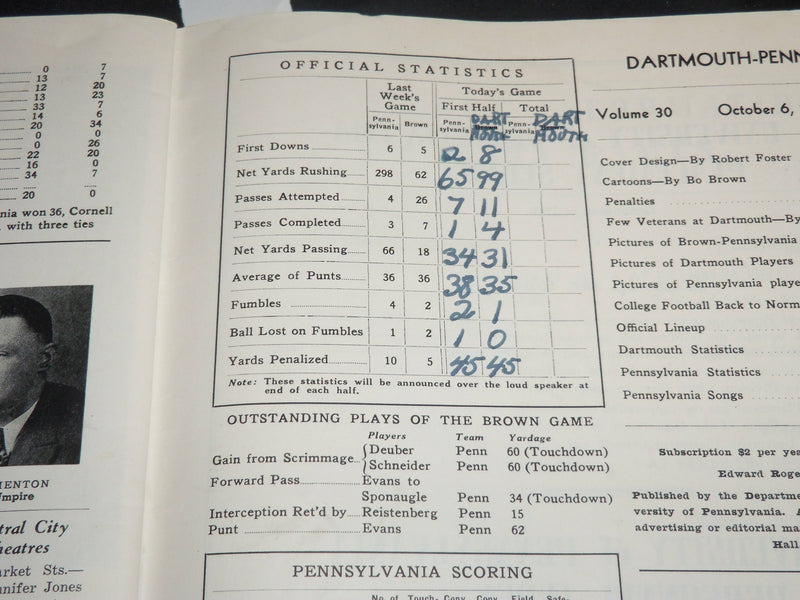 0 7
13 7
12 20
13 23
33 7
14 6
20 34
0 0
0 26
22 20
16 0
34 7
20 0
nia won 36, Cornell
with three ties
MENTON
Umpire
tral City
heatres
arket Sts.—
nnifer Jones
OFFICIAL STATISTICS
Last Week's Game
Today's Game
First Half Total
Penn-sylvania Brown Penn-sylvania DARTMOUTH Penn-sylvania DARTMOUTH
First Downs 6 5 2 8
Net Yards Rushing 298 62 65 99
Passes Attempted 4 26 7 11
Passes Completed 3 7 1 4
Net Yards Passing 66 18 34 31
Average of Punts 36 36 38 35
Fumbles 4 2 2 1
Ball Lost on Fumbles 1 2 1 0
Yards Penalized 10 5 45 45
Note: These statistics will be announced over the loud speaker at
end of each half.
OUTSTANDING PLAYS OF THE BROWN GAME
Players Team Yardage
Gain from Scrimmage { Deuber Penn 60 (Touchdown)
Schneider Penn 60 (Touchdown)
Forward Pass Evans to
Sponaugle Penn 34 (Touchdown)
Interception Ret'd by Reistenberg Penn 15
Punt Evans Penn 62
PENNSYLVANIA SCORING
No. of Touch- Conv. Conv. Field Safe-
DARTMOUTH-PENN
Volume 30 October 6,
Cover Design—By Robert Foster
Cartoons—By Bo Brown
Penalties
Few Veterans at Dartmouth—By
Pictures of Brown-Pennsylvania
Pictures of Dartmouth Players
Pictures of Pennsylvania playe
College Football Back to Norm
Official Lineup
Dartmouth Statistics
Pennsylvania Statistics
Pennsylvania Songs
Subscription $2 per yea
Edward Roge
Published by the Departme
versity of Pennsylvania. A
advertising or editorial ma
Hall